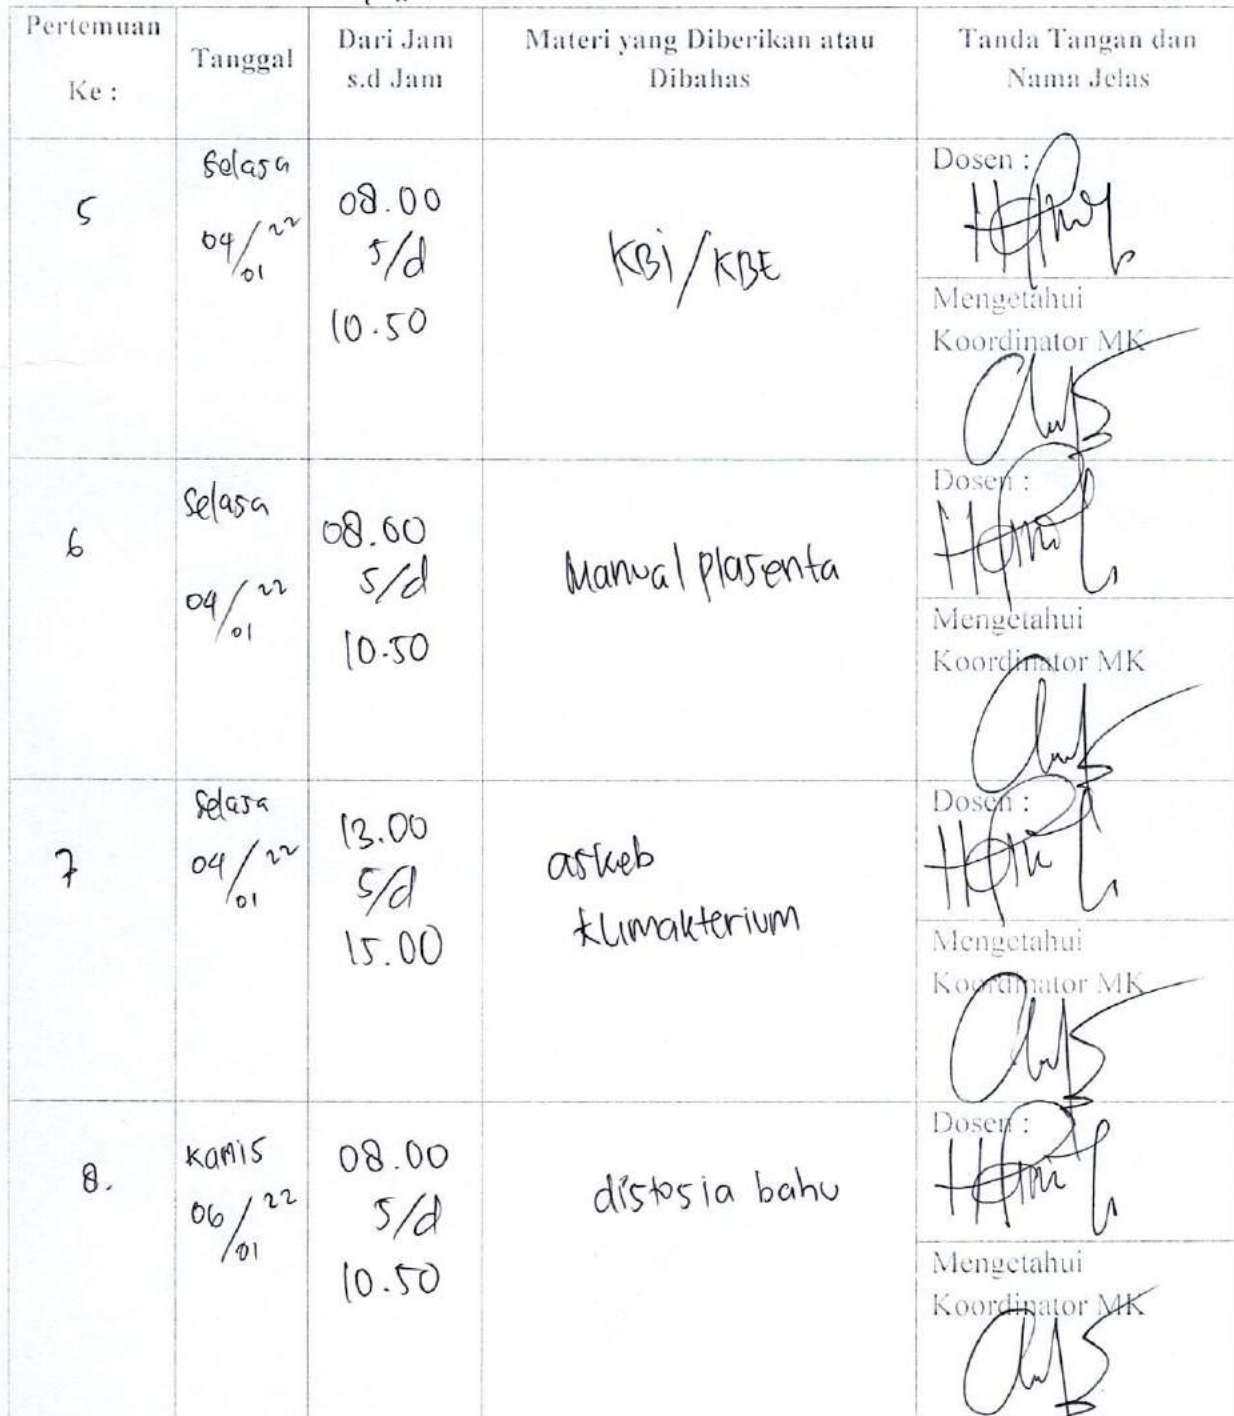 Pertemuan
Ke :
Tanggal
Dari Jam
s.d Jam
Materi yang Diberikan atau
Dibahas
Tanda Tangan dan
Nama Jelas
5
Selasa
04/01 22
08.00
s/d
10.50
KBI/KBE
Dosen :
Mengetahui
Koordinator MK
6
Selasa
04/01 22
08.00
s/d
10.50
Manual plasenta
Dosen :
Mengetahui
Koordinator MK
7
Selasa
04/01 22
13.00
s/d
15.00
askeb
klimakterium
Dosen :
Mengetahui
Koordinator MK
8.
Kamis
06/01 22
08.00
s/d
10.50
distosia bahu
Dosen :
Mengetahui
Koordinator MK